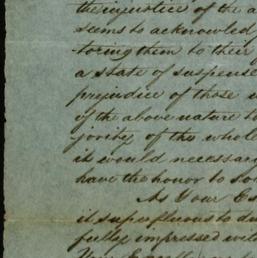 the injustice of the a
seems to acknowled
toring them to their
a state of suspense
prejudice of those
of the above nature to
jority of the whole
it would necessar
have the honor to
As Your Ex
it superfluous to di
fully impressed wi